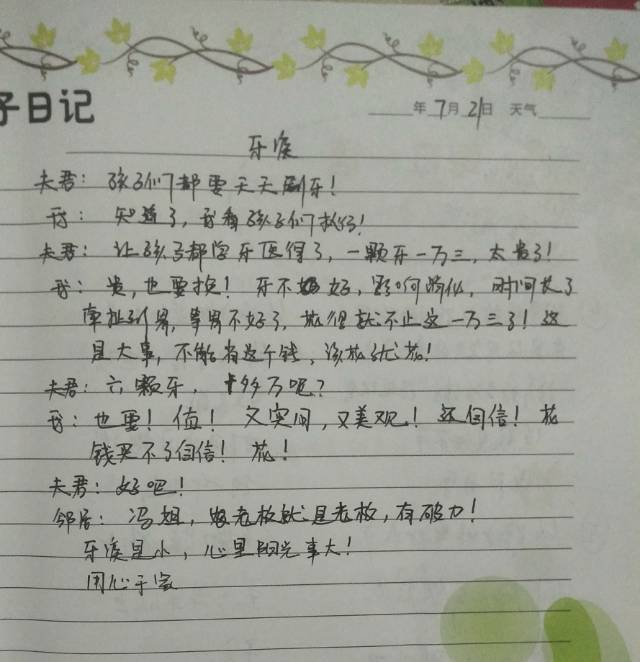 子日记
年7月21日 天气
牙疾
夫君：孩子们都要天天刷牙！
我：知道了，我看孩子们挺好！
夫君：让孩子都学牙医得了，一颗牙一万三，太贵了！
我：贵，也要换！牙不好，影响，时间长了
牵扯到胃，等胃不好了，花得就不止这一万三了！这
是大事，不能省这个钱，该花就花！
夫君：六颗牙，十多万呢？
我：也要！值！又实用，又美观！还自信！花
钱买不了自信！花！
夫君：好吧！
邻居：冯姐，您老板就是老板，有破力！
牙疾是小，心里阳光事大！
用心于家